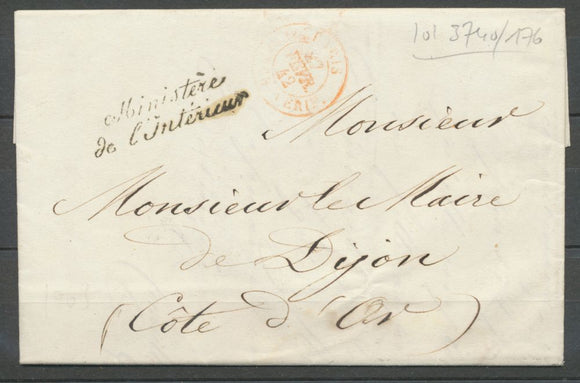 lot 3740/176
Ministère
de l'Intérieur
Monsieur
Monsieur le Maire
de Dijon
(Côte d'Or)